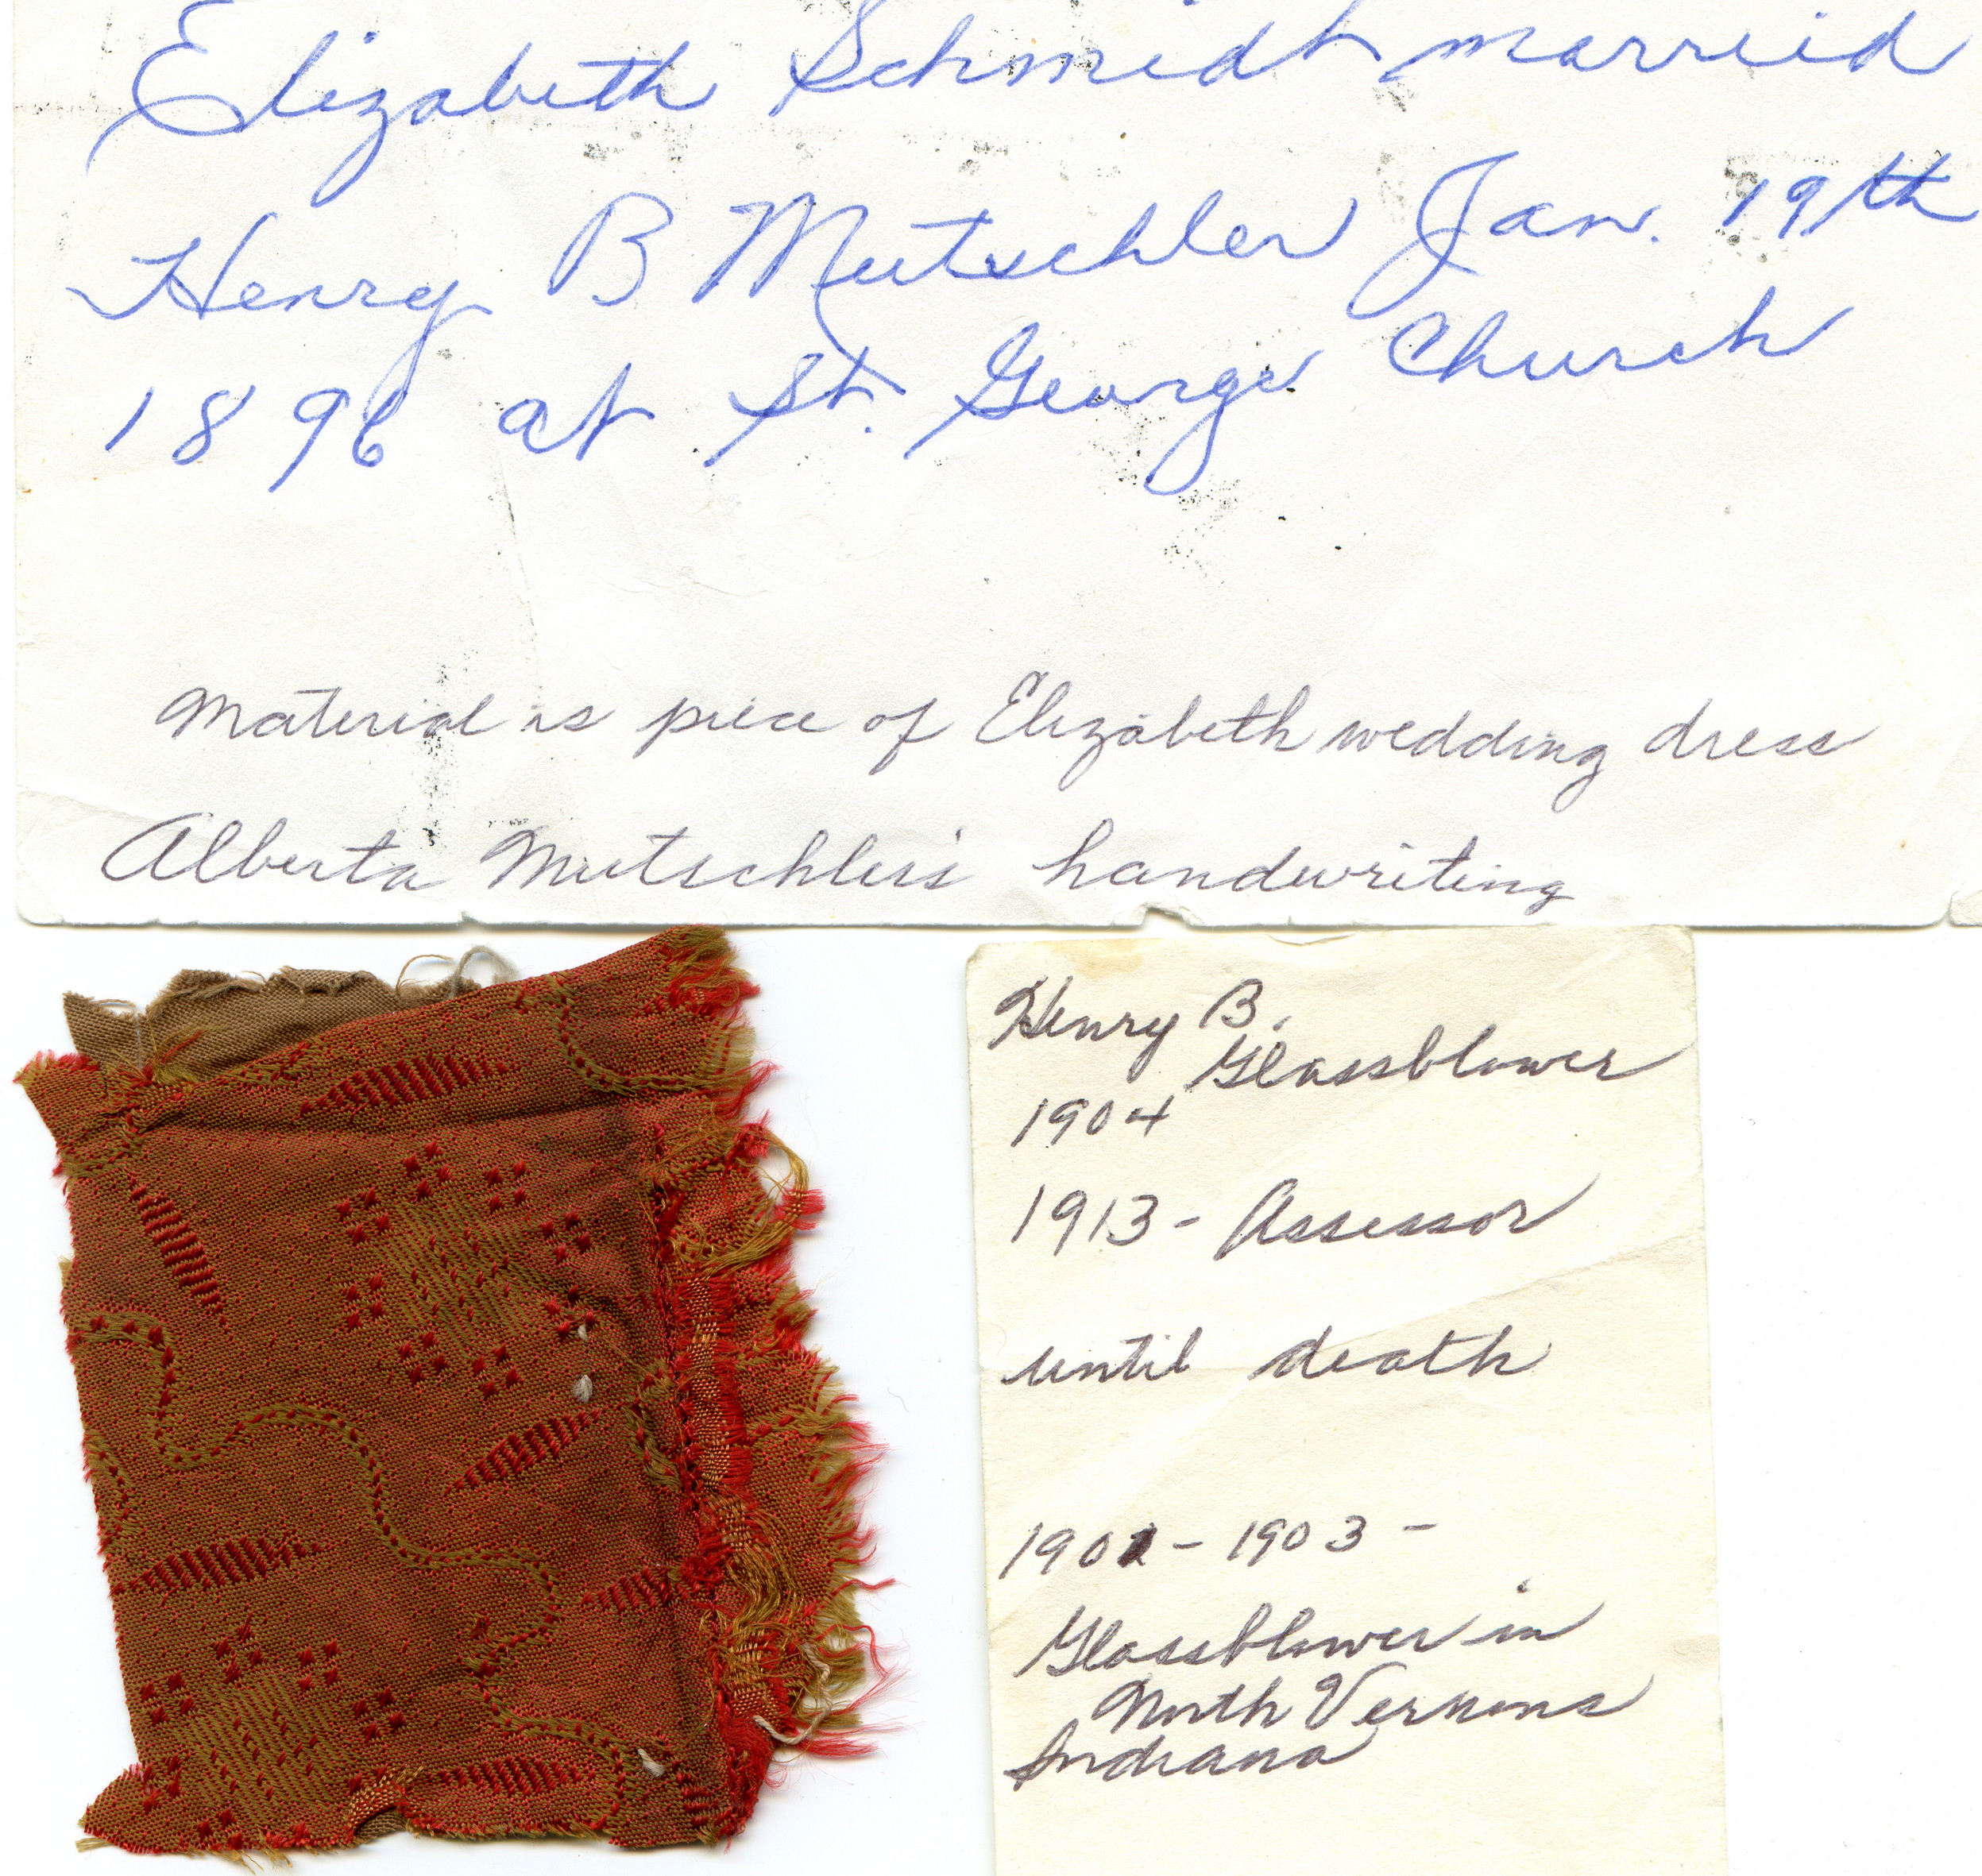 Elizabeth Schmidt married
Henry B Mutschler Jan. 19th
1896 at St. George Church
Material is piece of Elizabeth wedding dress
Alberta Mutschler's handwriting
Henry B.
Glassblower
1904
1913 - Assessor
until death
1902 - 1903 -
Glassblower in
North Vernons
Indiana